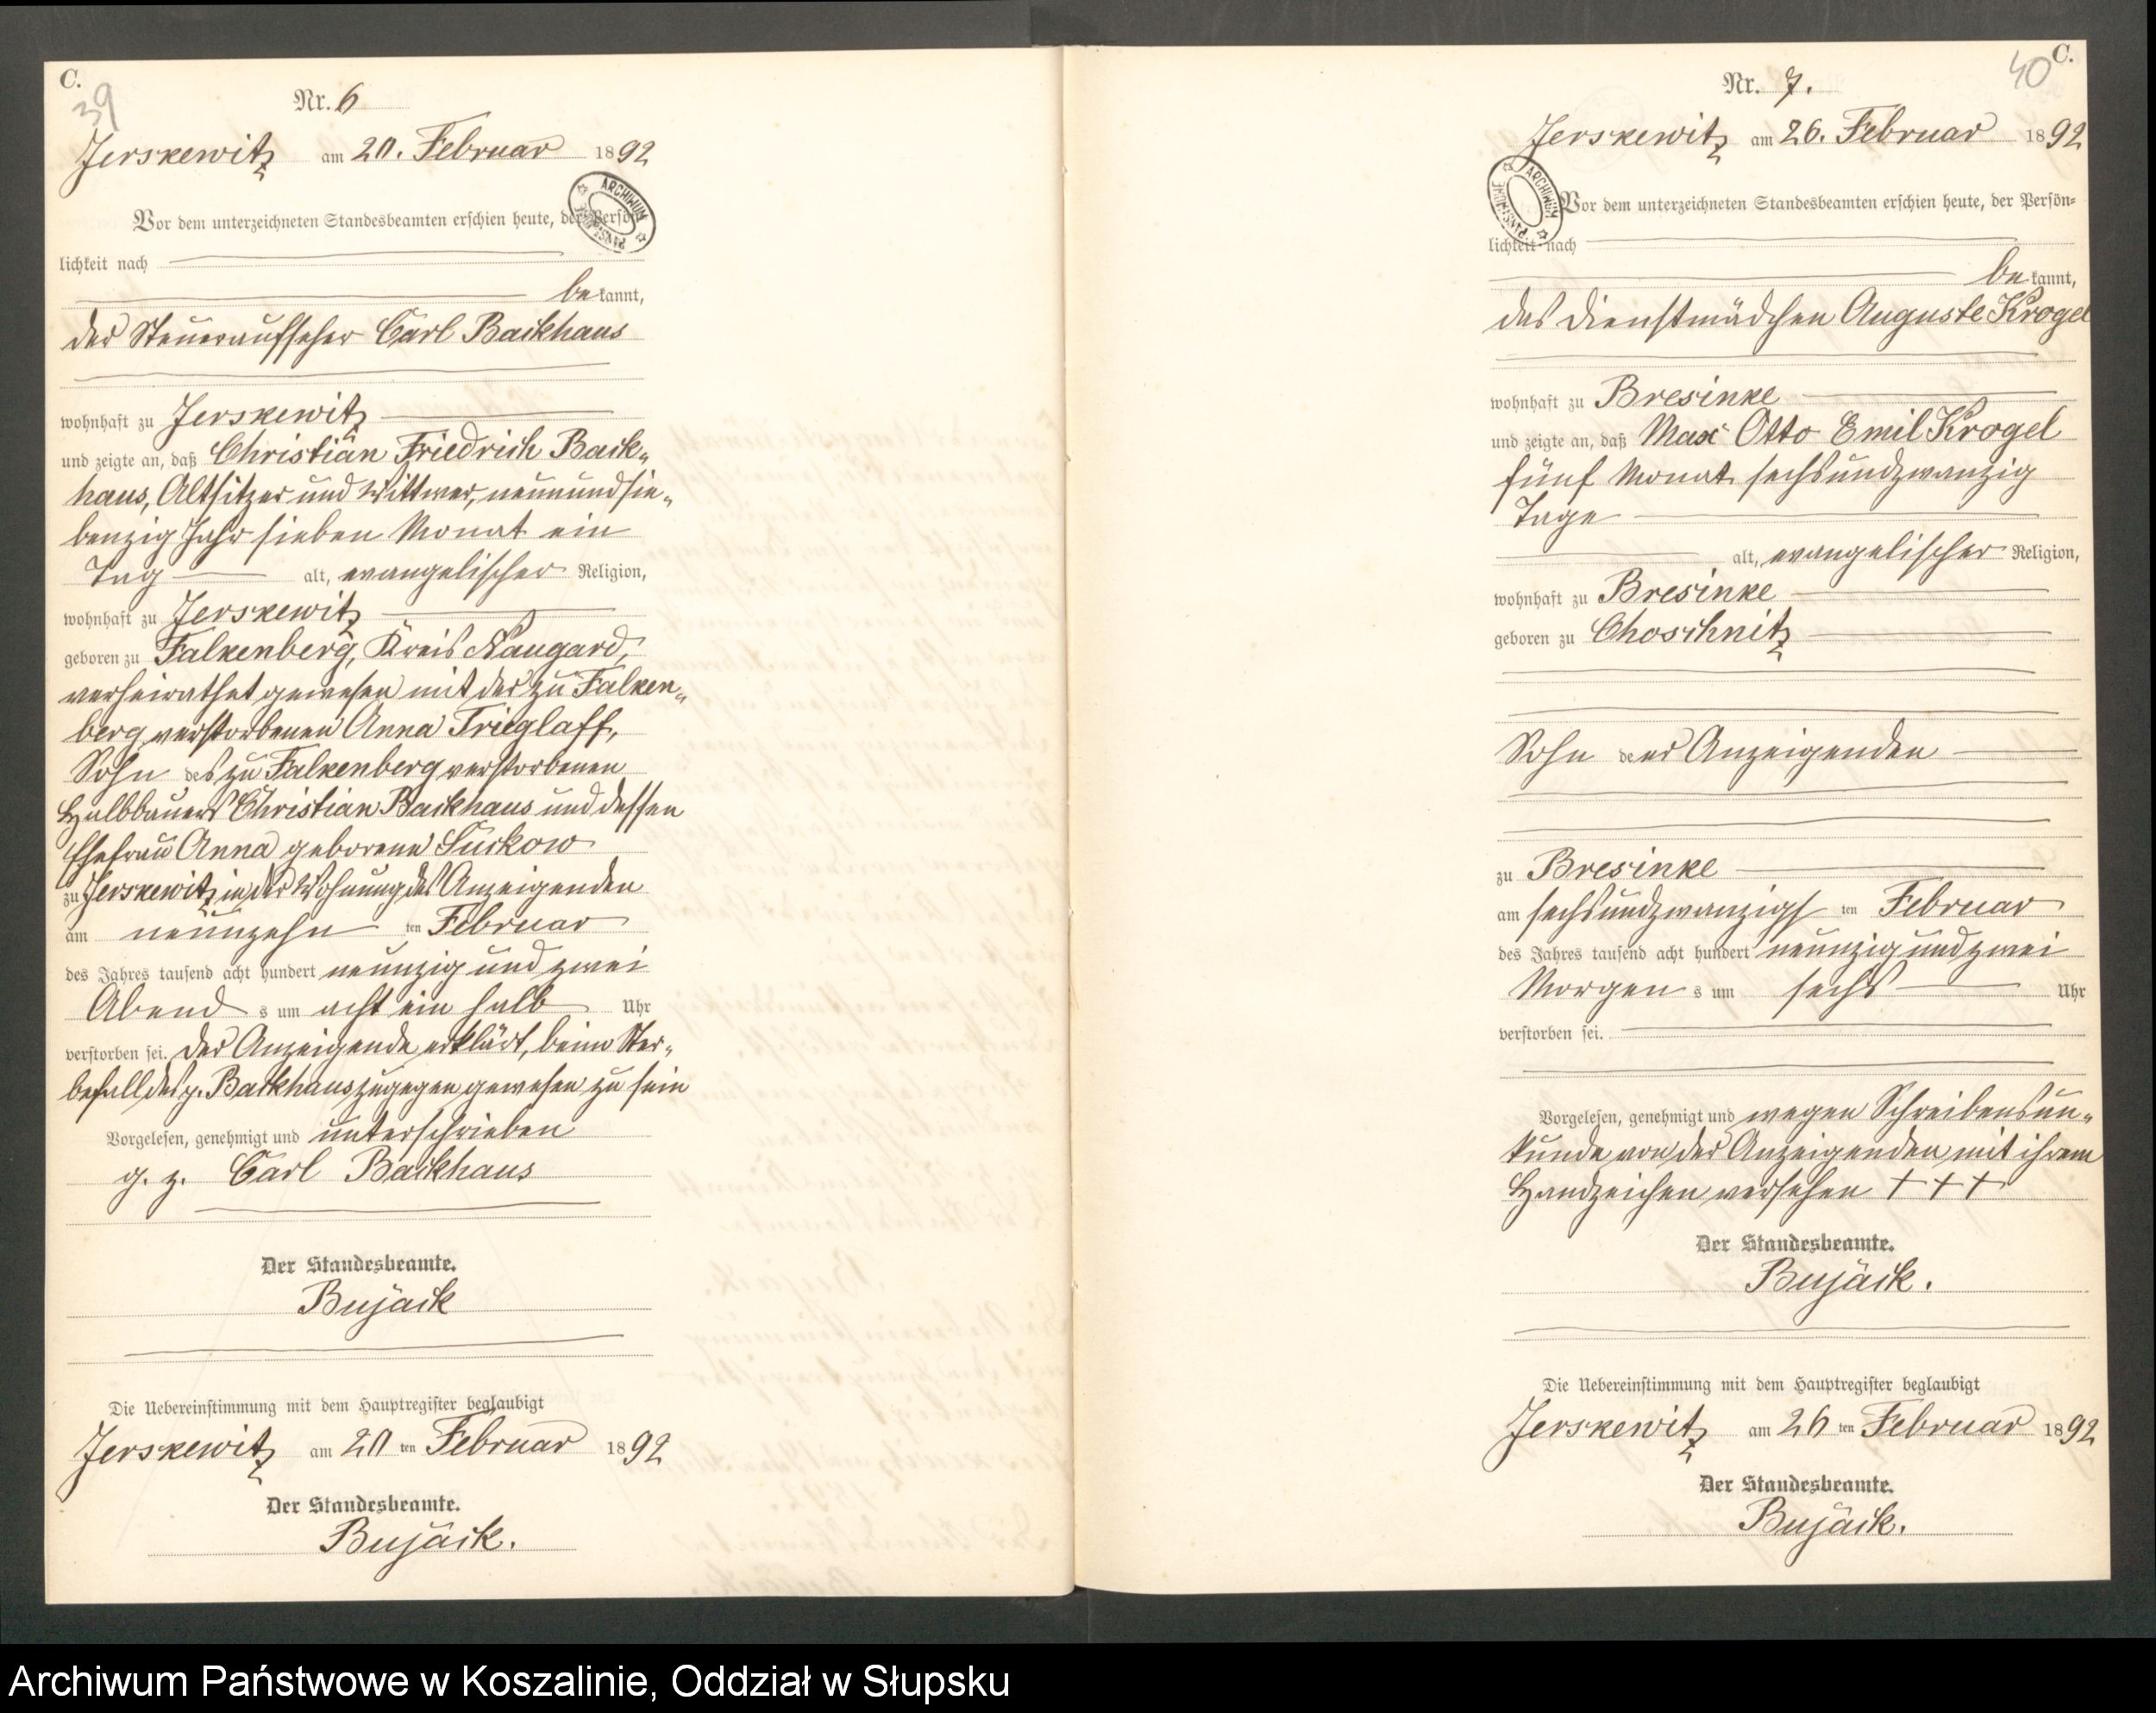 C.
39
Nr. 6
Jerskewitz am 20. Februar 1892
Vor dem unterzeichneten Standesbeamten erschien heute, der Persön-
lichkeit nach
be kannt,
der Steueraufseher Carl Backhaus
wohnhaft zu Jerskewitz
und zeigte an, daß Christian Friedrich Back-
haus, Altsitzer und Wittwer, neunundsie-
benzig Jahr sieben Monat ein
Tag alt, evangelischer Religion,
wohnhaft zu Jerskewitz
geboren zu Falkenberg, Kreis Naugard,
verheirathet gewesen mit der zu Falken-
berg verstorbenen Anna Trieglaff,
Sohn des zu Falkenberg verstorbenen
Halbbauers Christian Backhaus und dessen
Ehefrau Anna geborene Suckow
zu Jerskewitz in der Wohnung des Anzeigenden
am neunzehn ten Februar
des Jahres tausend acht hundert neunzig und zwei
Abend s um acht ein halb Uhr
verstorben sei. Der Anzeigende erklärt, beim Ster-
befall des p. Backhaus zugegen gewesen zu sein
Vorgelesen, genehmigt und unterschrieben
g. z. Carl Backhaus
Der Standesbeamte.
Bujack
Die Uebereinstimmung mit dem Hauptregister beglaubigt
Jerskewitz am 20 ten Februar 1892
Der Standesbeamte.
Bujack.
C.
40
Nr. 7.
Jerskewitz am 26. Februar 1892
Vor dem unterzeichneten Standesbeamten erschien heute, der Persön-
lichkeit nach
be kannt,
das Dienstmädchen Auguste Krogel
wohnhaft zu Bresinke
und zeigte an, daß Max Otto Emil Krogel
fünf Monat sechsundzwanzig
Tage
alt, evangelischer Religion,
wohnhaft zu Bresinke
geboren zu Choschnitz
Sohn der Anzeigenden
zu Bresinke
am sechsundzwanzigs ten Februar
des Jahres tausend acht hundert neunzig und zwei
Morgen s um sechs Uhr
verstorben sei.
Vorgelesen, genehmigt und wegen Schreibensun-
kunde von der Anzeigenden mit ihrem
Handzeichen versehen + + +
Der Standesbeamte.
Bujack.
Die Uebereinstimmung mit dem Hauptregister beglaubigt
Jerskewitz am 26 ten Februar 1892
Der Standesbeamte.
Bujack.
ARCHIWUM PAŃSTWOWE
ARCHIWUM PAŃSTWOWE
Archiwum Państwowe w Koszalinie, Oddział w Słupsku